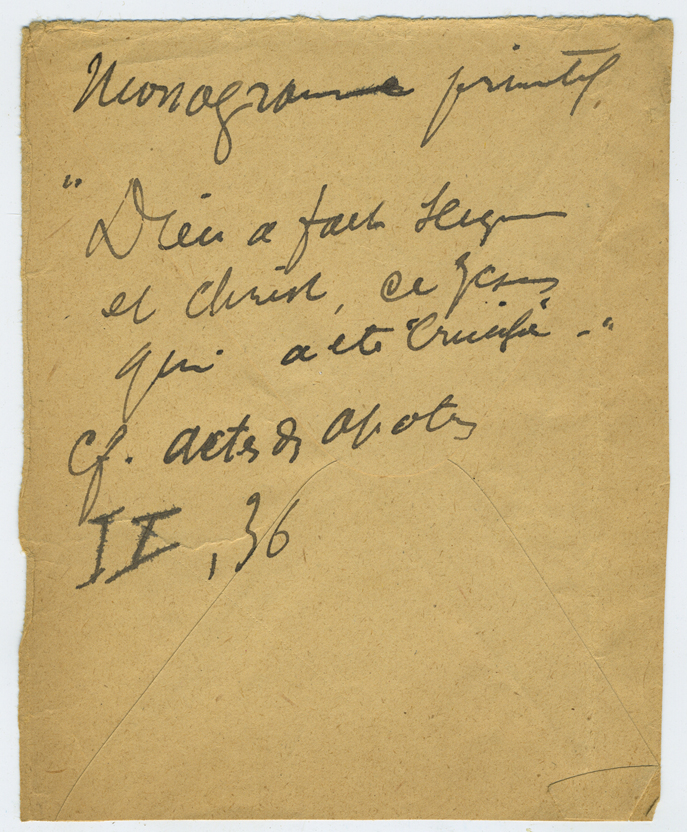 Monogramme primitif.
"Dieu a fait Seigneur
et Christ, ce Jesus
qui a ete "Crucifié" -"
Cf. actes des apotres
II, 36